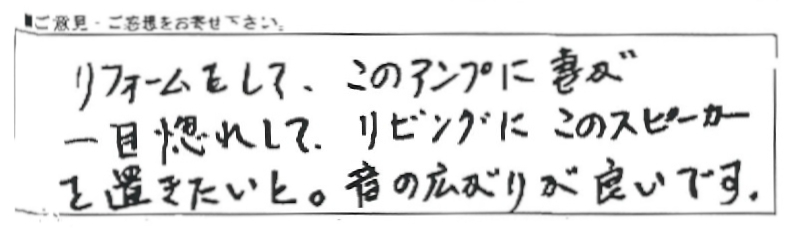 ■ご意見・ご感想をお寄せ下さい。
リフォームをして、このアンプに妻が
一目惚れして、リビングにこのスピーカー
を置きたいと。音の広がりが良いです.